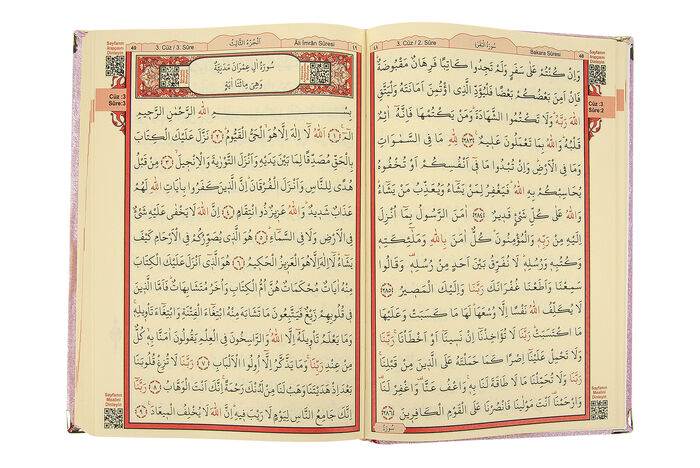 ١٨ 3. Cüz / 2. Sûre سُورَةُ الْبَقَرَةِ Bakara Sûresi 48
Sayfanın
Arapçasını
Dinleyin
وَاِنْ كُنْتُمْ عَلٰى سَفَرٍ وَلَمْ تَجِدُوا كَاتِبًا فَرِهَانٌ مَقْبُوضَةٌ
فَاِنْ اَمِنَ بَعْضُكُمْ بَعْضًا فَلْيُؤَدِّ الَّذِي اؤْتُمِنَ اَمَانَتَهُ وَلْيَتَّقِ
اللّٰهَ رَبَّهُ وَلَا تَكْتُمُوا الشَّهَادَةَ وَمَنْ يَكْتُمْهَا فَاِنَّهُ اٰثِمٌ
قَلْبُهُ وَاللّٰهُ بِمَا تَعْمَلُونَ عَلِيمٌ ﴿٢٨٣﴾ لِلّٰهِ مَا فِي السَّمٰوَاتِ
وَمَا فِي الْاَرْضِ وَاِنْ تُبْدُوا مَا فِي اَنْفُسِكُمْ اَوْ تُخْفُوهُ
يُحَاسِبْكُمْ بِهِ اللّٰهُ فَيَغْفِرُ لِمَنْ يَشَاءُ وَيُعَذِّبُ مَنْ يَشَاءُ
وَاللّٰهُ عَلٰى كُلِّ شَيْءٍ قَدِيرٌ ﴿٢٨٤﴾ اٰمَنَ الرَّسُولُ بِمَا اُنْزِلَ
اِلَيْهِ مِنْ رَبِّهِ وَالْمُؤْمِنُونَ كُلٌّ اٰمَنَ بِاللّٰهِ وَمَلٰئِكَتِهِ
وَكُتُبِهِ وَرُسُلِهِ لَا نُفَرِّقُ بَيْنَ اَحَدٍ مِنْ رُسُلِهِ وَقَالُوا
سَمِعْنَا وَاَطَعْنَا غُفْرَانَكَ رَبَّنَا وَاِلَيْكَ الْمَصِيرُ ﴿٢٨٥﴾
لَا يُكَلِّفُ اللّٰهُ نَفْسًا اِلَّا وُسْعَهَا لَهَا مَا كَسَبَتْ وَعَلَيْهَا
مَا اكْتَسَبَتْ رَبَّنَا لَا تُؤَاخِذْنَا اِنْ نَسِينَا اَوْ اَخْطَأْنَا رَبَّنَا
وَلَا تَحْمِلْ عَلَيْنَا اِصْرًا كَمَا حَمَلْتَهُ عَلَى الَّذِينَ مِنْ قَبْلِنَا
رَبَّنَا وَلَا تُحَمِّلْنَا مَا لَا طَاقَةَ لَنَا بِهِ وَاعْفُ عَنَّا وَاغْفِرْ لَنَا
وَارْحَمْنَا اَنْتَ مَوْلٰينَا فَانْصُرْنَا عَلَى الْقَوْمِ الْكَافِرِينَ ﴿٢٨٦﴾
سُورَةُ
Cüz :3
Sûre:2
Sayfanın
Mealini
Dinleyin
49 3. Cüz / 3. Sûre اَلْجُزْءُ الثَّالِثُ Âli İmrân Sûresi ١٩
Sayfanın
Arapçasını
Dinleyin
سُورَةُ اٰلِ عِمْرَانَ مَدَنِيَّةٌ
وَهِيَ مِائَتَا اٰيَةٍ
بِسْمِ اللّٰهِ الرَّحْمٰنِ الرَّحِيمِ
الٓمٓ ﴿١﴾ اَللّٰهُ لَا اِلٰهَ اِلَّا هُوَ الْحَيُّ الْقَيُّومُ ﴿٢﴾ نَزَّلَ عَلَيْكَ الْكِتَابَ
بِالْحَقِّ مُصَدِّقًا لِمَا بَيْنَ يَدَيْهِ وَاَنْزَلَ التَّوْرٰيةَ وَالْاِنْجِيلَ ﴿٣﴾ مِنْ قَبْلُ
هُدًى لِلنَّاسِ وَاَنْزَلَ الْفُرْقَانَ اِنَّ الَّذِينَ كَفَرُوا بِاٰيَاتِ اللّٰهِ لَهُمْ
عَذَابٌ شَدِيدٌ وَاللّٰهُ عَزِيزٌ ذُو انْتِقَامٍ ﴿٤﴾ اِنَّ اللّٰهَ لَا يَخْفٰى عَلَيْهِ شَيْءٌ
فِي الْاَرْضِ وَلَا فِي السَّمَاءِ ﴿٥﴾ هُوَ الَّذِي يُصَوِّرُكُمْ فِي الْاَرْحَامِ كَيْفَ
يَشَاءُ لَا اِلٰهَ اِلَّا هُوَ الْعَزِيزُ الْحَكِيمُ ﴿٦﴾ هُوَ الَّذِي اَنْزَلَ عَلَيْكَ الْكِتَابَ
مِنْهُ اٰيَاتٌ مُحْكَمَاتٌ هُنَّ اُمُّ الْكِتَابِ وَاُخَرُ مُتَشَابِهَاتٌ فَاَمَّا الَّذِينَ
فِي قُلُوبِهِمْ زَيْغٌ فَيَتَّبِعُونَ مَا تَشَابَهَ مِنْهُ ابْتِغَاءَ الْفِتْنَةِ وَابْتِغَاءَ تَأْوِيلِهِ
وَمَا يَعْلَمُ تَأْوِيلَهُ اِلَّا اللّٰهُ وَالرَّاسِخُونَ فِي الْعِلْمِ يَقُولُونَ اٰمَنَّا بِهِ كُلٌّ
مِنْ عِنْدِ رَبِّنَا وَمَا يَذَّكَّرُ اِلَّا اُولُوا الْاَلْبَابِ ﴿٧﴾ رَبَّنَا لَا تُزِغْ قُلُوبَنَا
بَعْدَ اِذْ هَدَيْتَنَا وَهَبْ لَنَا مِنْ لَدُنْكَ رَحْمَةً اِنَّكَ اَنْتَ الْوَهَّابُ ﴿٨﴾ رَبَّنَا
اِنَّكَ جَامِعُ النَّاسِ لِيَوْمٍ لَا رَيْبَ فِيهِ اِنَّ اللّٰهَ لَا يُخْلِفُ الْمِيعَادَ ﴿٩﴾
Cüz :3
Sûre:3
Sayfanın
Mealini
Dinleyin